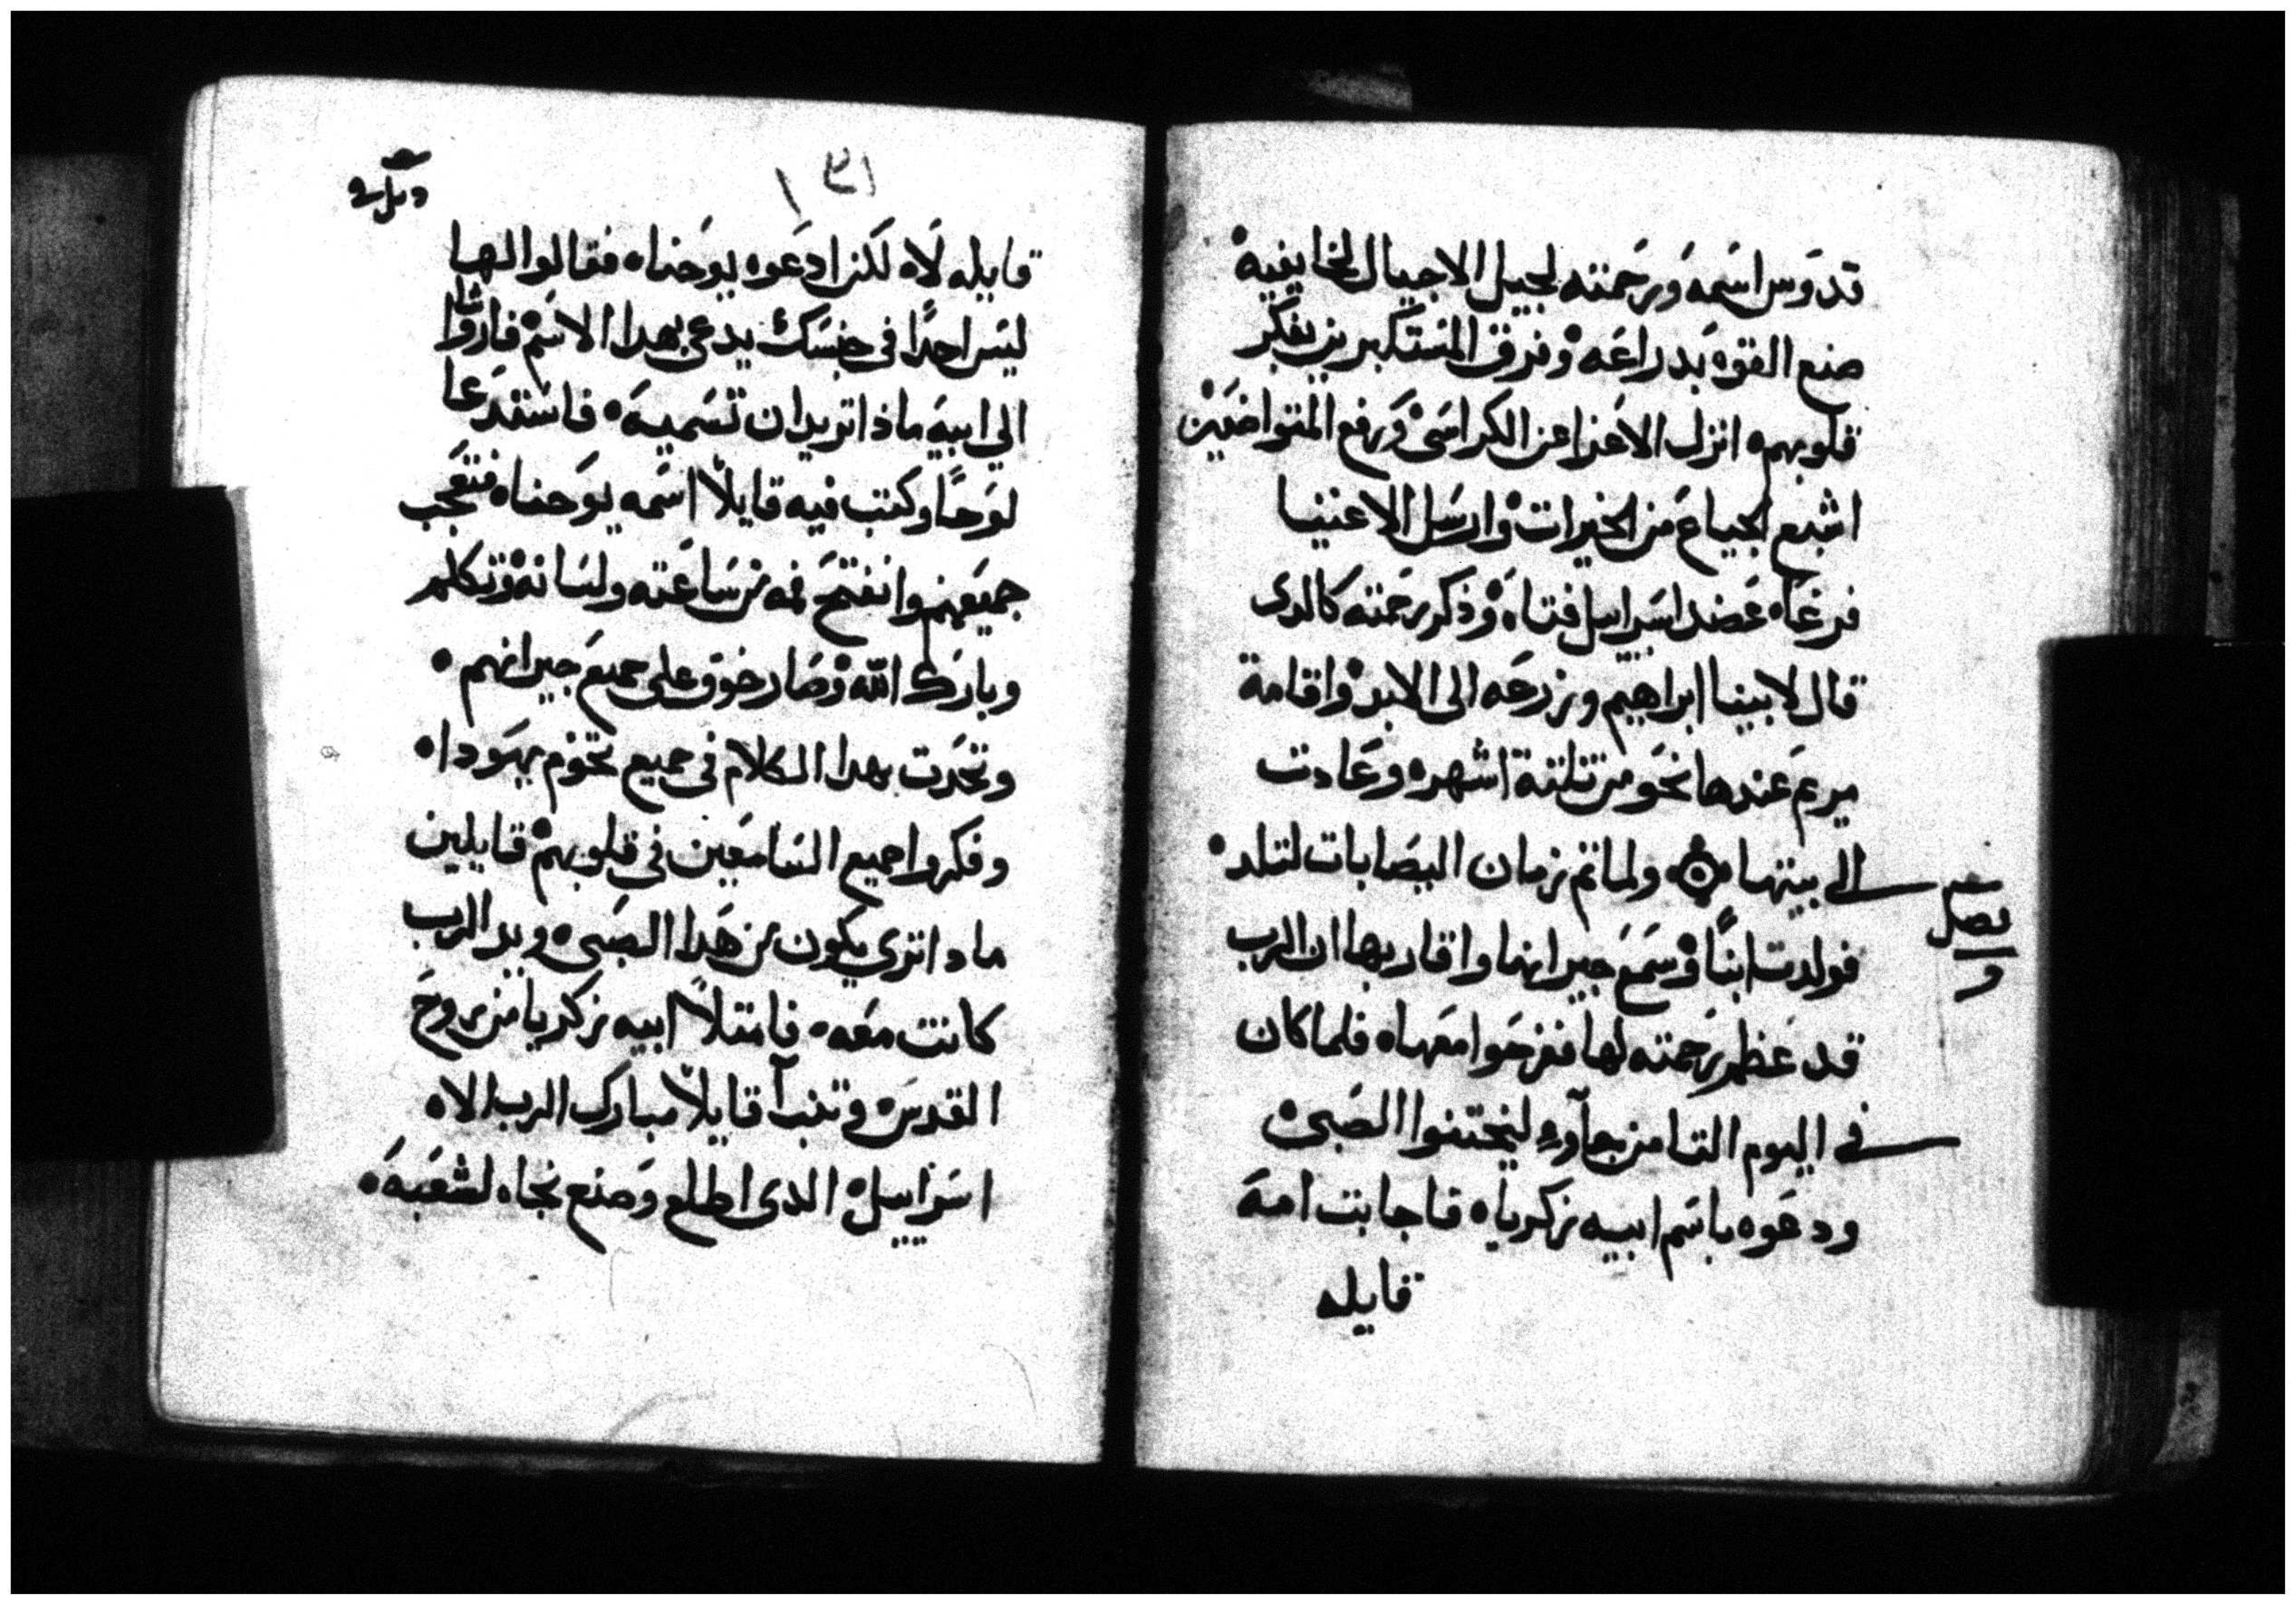 قدوس اسمه ورحمته لجيل الاجيال لخايفيه
صنع القوه بدراعه وفرق المستكبرين بفكر
قلوبهم انزل الاعزا عن الكراسى ورفع المتواضعين
اشبع الجياع من الخيرات وارسل الاغنيا
فرغاه عضد اسراييل فتاه وذكر رحمته كالدى
قال لابينا ابراهيم وزرعه الى الابد واقامة
مريم عندها نحو من تلتة اشهره وعادت
الى بيتها ولما تم زمان اليصابات لتلد
فصل
و
فولدت ابنًا وسمع جيرانها واقاربها ان الرب
قد عظم رحمته لها ففرحوا معهاه فلما كان
فى اليوم التامن جآوه ليختنوا الصبى
ودعوه باسم ابيه زكرياه فاجابت امه
قايله
١٣١
قايله لاه لكن ادعوه يوحناه فقالوا لها
ليس احدًا فى جنسك يدعى بهدا الاسم فاشاروا
الي ابيه ماذا تريد ان تسميه فاستدعا
لوحًا وكتب فيه قايلًا اسمه يوحناه فتعجب
جميعهم وانفتح فمه من ساعته ولسانه وتكلم
وبارك الله وصار خوف على جميع جيرانهم
وتحدت بهدا الكلام فى جميع تخوم يهوداه
وفكروا جميع السامعين في قلوبهم قايلين
مادا ترى يكون من هدا الصبى ويد الرب
كانت معه فامتلا ابيه زكريا من روح
القدس وتنبآ قايلًا مبارك الرب الاه
اسراييل الدى اطلع وصنع نجاه لشعبه